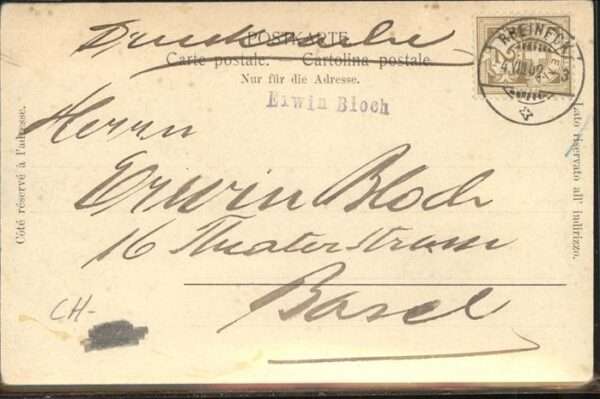 Drucksache
POSTKARTE
Carte postale. Cartolina postale
Nur für die Adresse.
Erwin Bloch
RHEINECK
Côté réservé à l'adresse.
Lato riservato all' indirizzo.
Herrn
Erwin Bloch
16 Theaterstrasse
Basel
CH-